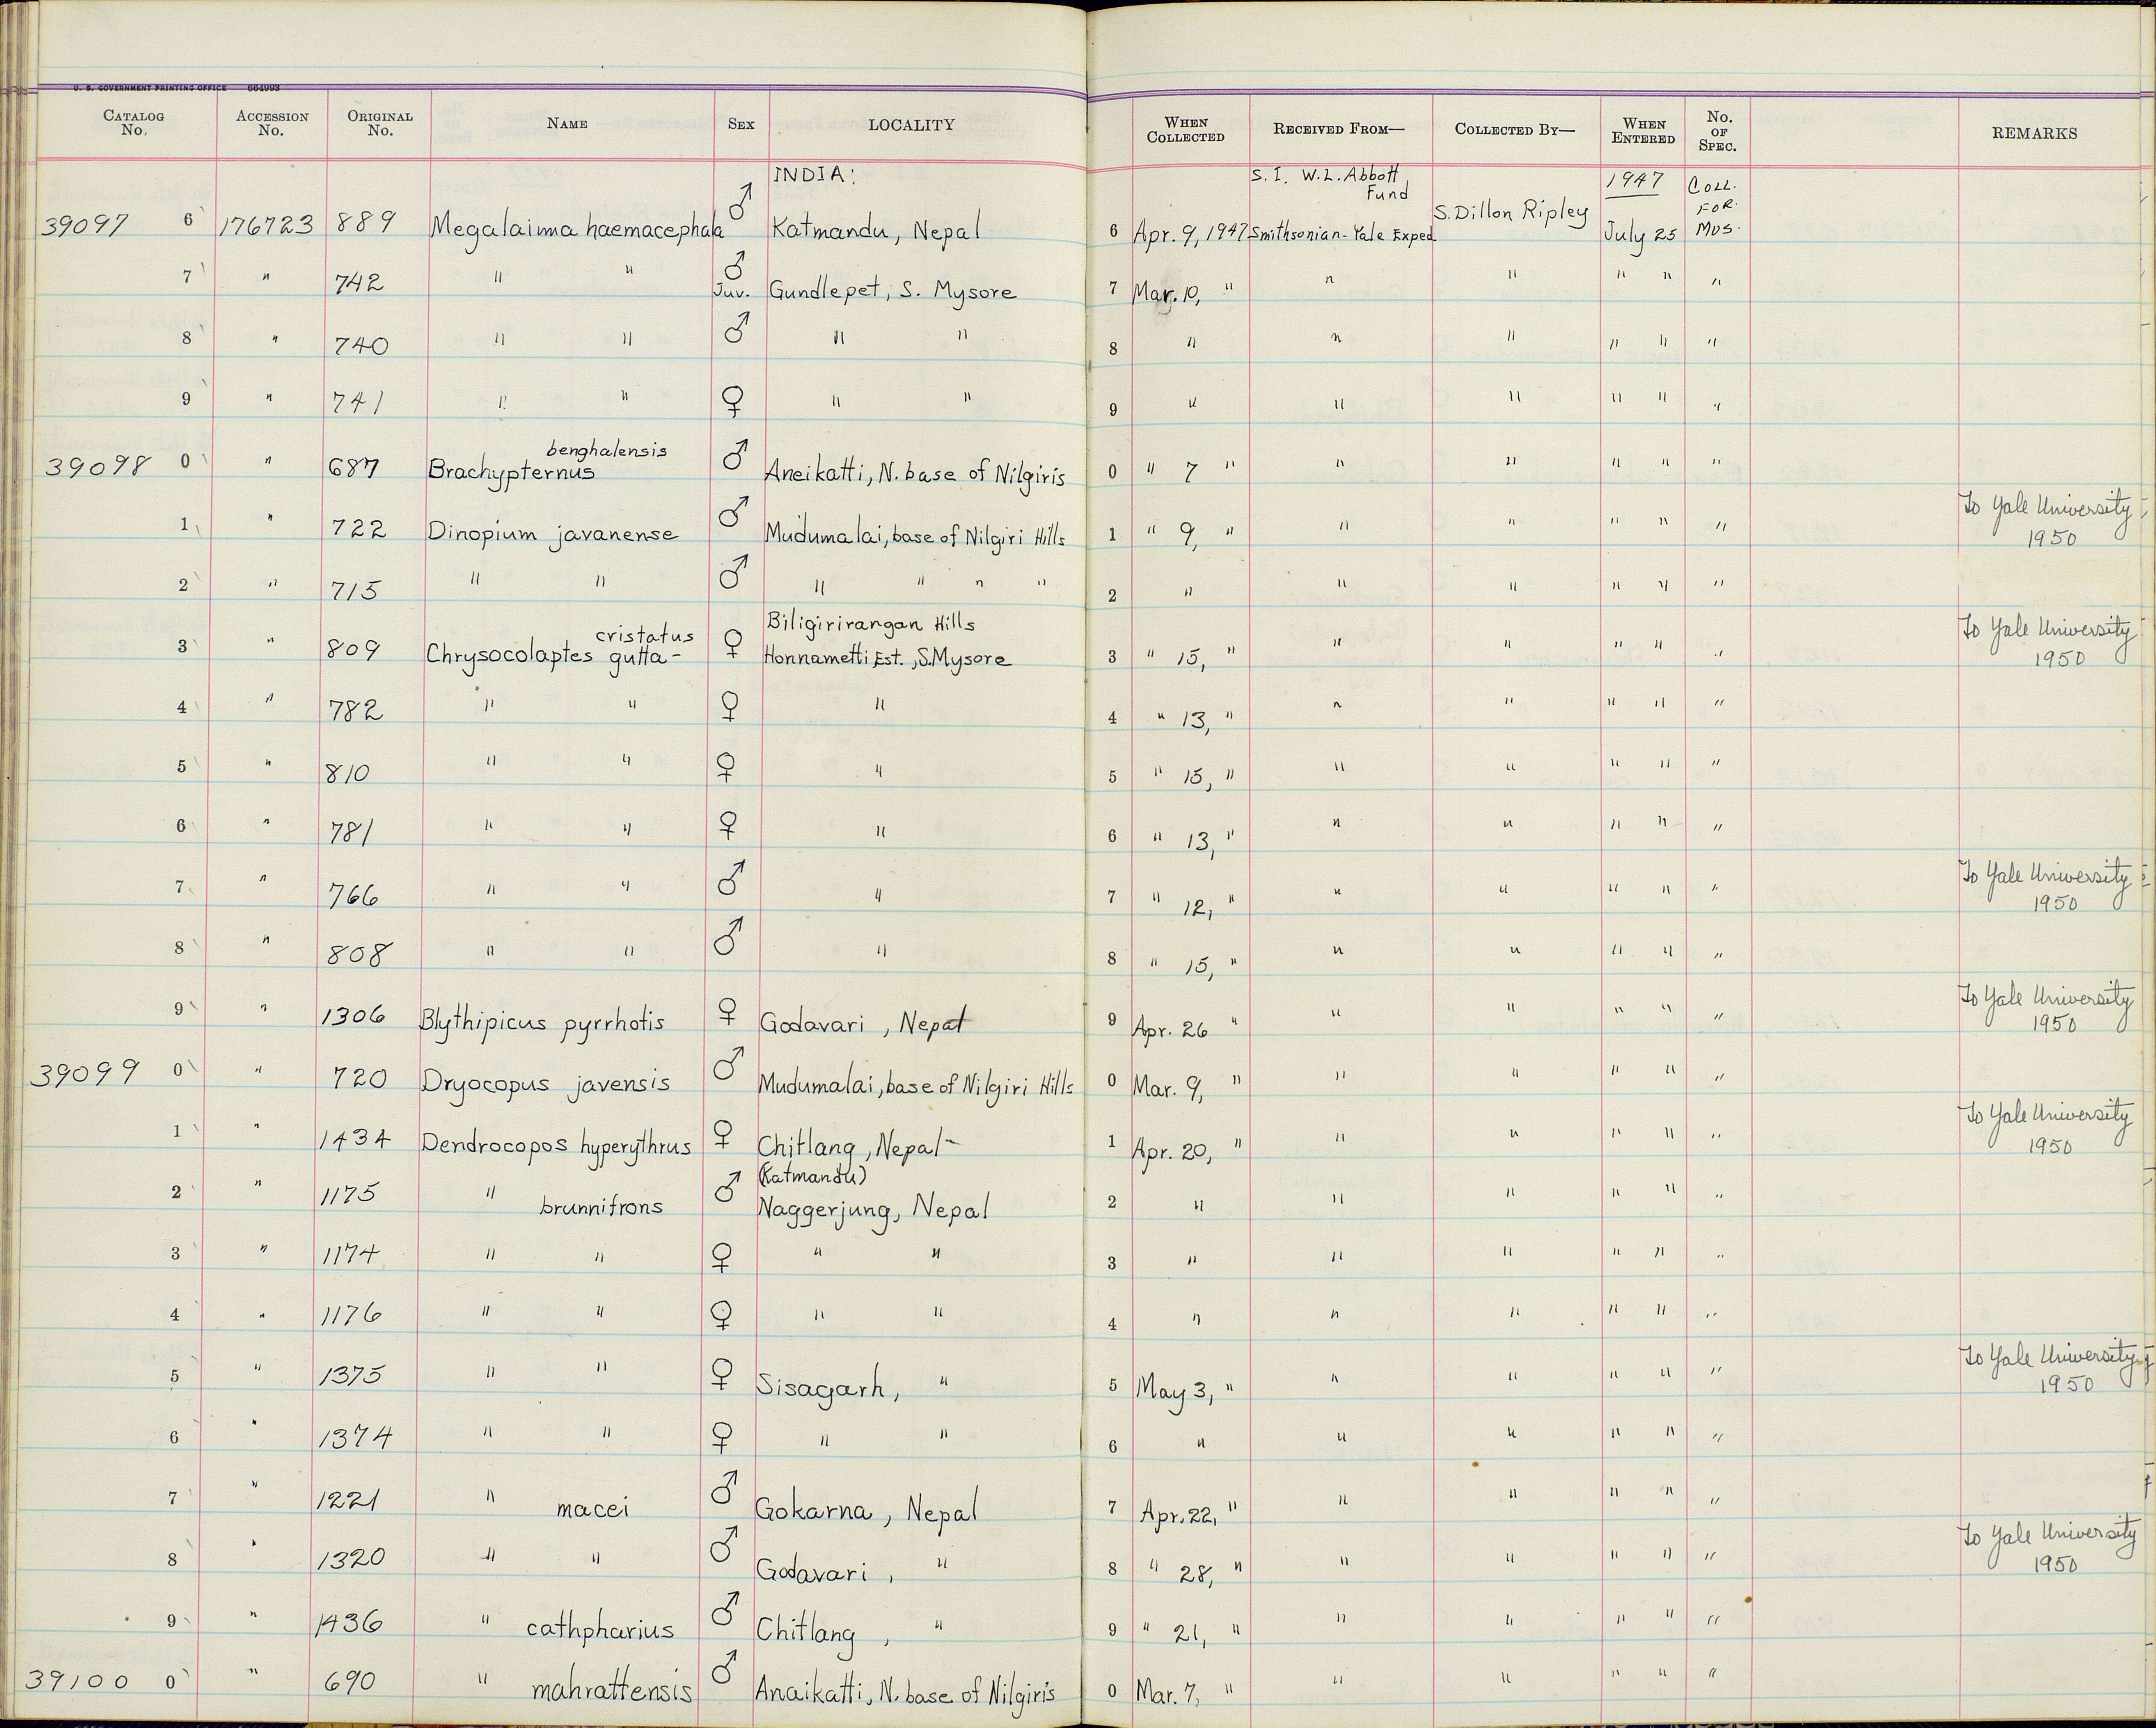 U. S. GOVERNMENT PRINTING OFFICE 664993
CATALOG No. ACCESSION No. ORIGINAL No. NAME SEX LOCALITY WHEN COLLECTED RECEIVED FROM— COLLECTED BY— WHEN ENTERED No. OF SPEC. REMARKS
INDIA: S. I. W. L. Abbott Fund 1947 COLL. FOR. MUS.
39097 6 176723 889 Megalaima haemacephala ♂ Katmandu, Nepal 6 Apr. 9, 1947 Smithsonian-Yale Exped. S. Dillon Ripley July 25
7 " 742 " " ♂ Juv. Gundlepet, S. Mysore 7 Mar. 10, " " " " " "
8 " 740 " " ♂ " " 8 " " " " " "
9 " 741 " " ♀ " " 9 " " " " " "
39098 0 " 687 Brachypternus benghalensis ♂ Aneikatti, N. base of Nilgiris 0 " 7 " " " " " "
1 " 722 Dinopium javanense ♂ Mudumalai, base of Nilgiri Hills 1 " 9, " " " " " " To Yale University 1950
2 " 715 " " ♂ " " " " 2 " " " " " "
3 " 809 Chrysocolaptes gutta- cristatus ♀ Biligirirangan Hills Honnametti Est., S. Mysore 3 " 15, " " " " " " To Yale University 1950
4 " 782 " " ♀ " 4 " 13, " " " " " "
5 " 810 " " ♀ " 5 " 15, " " " " " "
6 " 781 " " ♀ " 6 " 13, " " " " " "
7 " 766 " " ♂ " 7 " 12, " " " " " " To Yale University 1950
8 " 808 " " ♂ " 8 " 15, " " " " " "
9 " 1306 Blythipicus pyrrhotis ♀ Godavari, Nepal 9 Apr. 26 " " " " " " To Yale University 1950
39099 0 " 720 Dryocopus javensis ♂ Mudumalai, base of Nilgiri Hills 0 Mar. 9, " " " " " "
1 " 1434 Dendrocopos hyperythrus ♀ Chitlang, Nepal 1 Apr. 20, " " " " " " To Yale University 1950
2 " 1175 " brunnifrons ♂ (Katmandu) Naggerjung, Nepal 2 " " " " " "
3 " 1174 " " ♀ " " 3 " " " " " "
4 " 1176 " " ♀ " " 4 " " " " " "
5 " 1375 " " ♀ Sisagarh, " 5 May 3, " " " " " " To Yale University 1950
6 " 1374 " " ♀ " " 6 " " " " " "
7 " 1221 " macei ♂ Gokarna, Nepal 7 Apr. 22, " " " " " "
8 " 1320 " " ♂ Godavari, " 8 " 28, " " " " " " To Yale University 1950
9 " 1436 " cathpharius ♂ Chitlang, " 9 " 21, " " " " " "
39100 0 " 690 " mahrattensis ♂ Anaikatti, N. base of Nilgiris 0 Mar. 7, " " " " " "